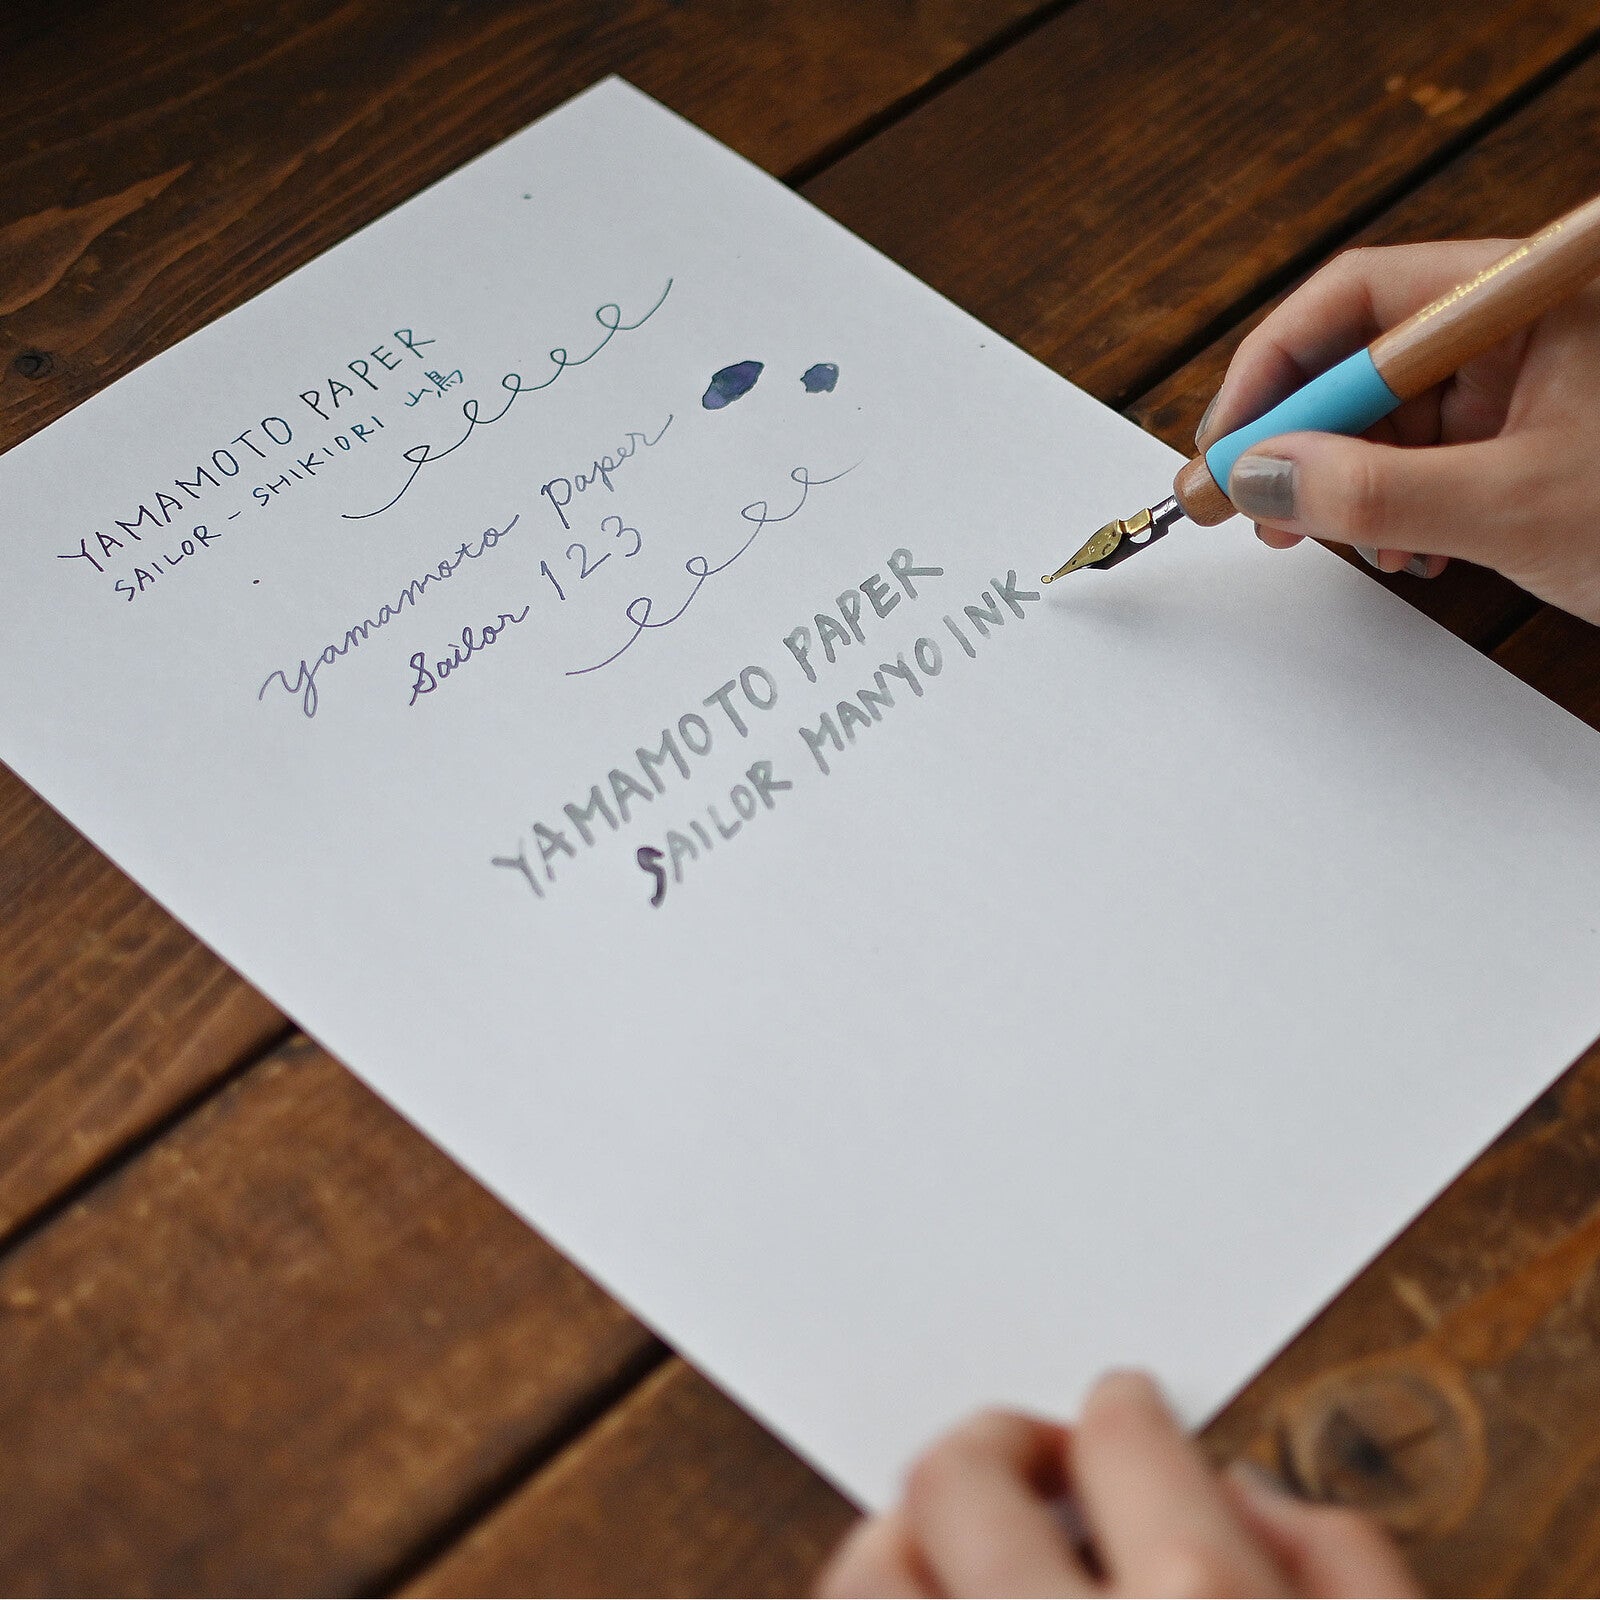 YAMAMOTO PAPER
SAILOR - SHIKIORI 山鳥
yamamoto paper
Sailor 123
YAMAMOTO PAPER
SAILOR MANYO INK